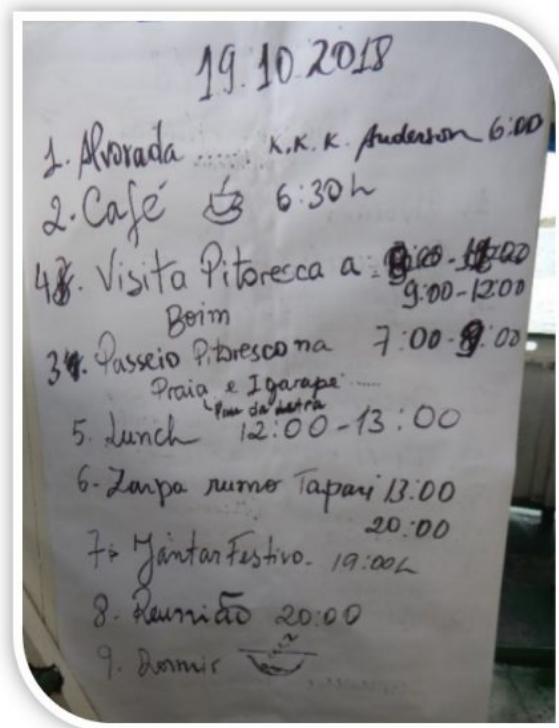 19.10.2018
1. Alvorada ..... K.K.K. Anderson 6:00
2. Café 6:30h
4. Visita Pitoresca a
9:00-12:00
Boim
3. Passeio Pitoresco na 7:00-9:00
Praia e Igarapé .....
5. Lunch 12:00-13:00
6- Zarpa rumo Tapari 13:00
20:00
7. Jantar Festivo. 19:00h
8. Reunião 20:00
9. Dormir